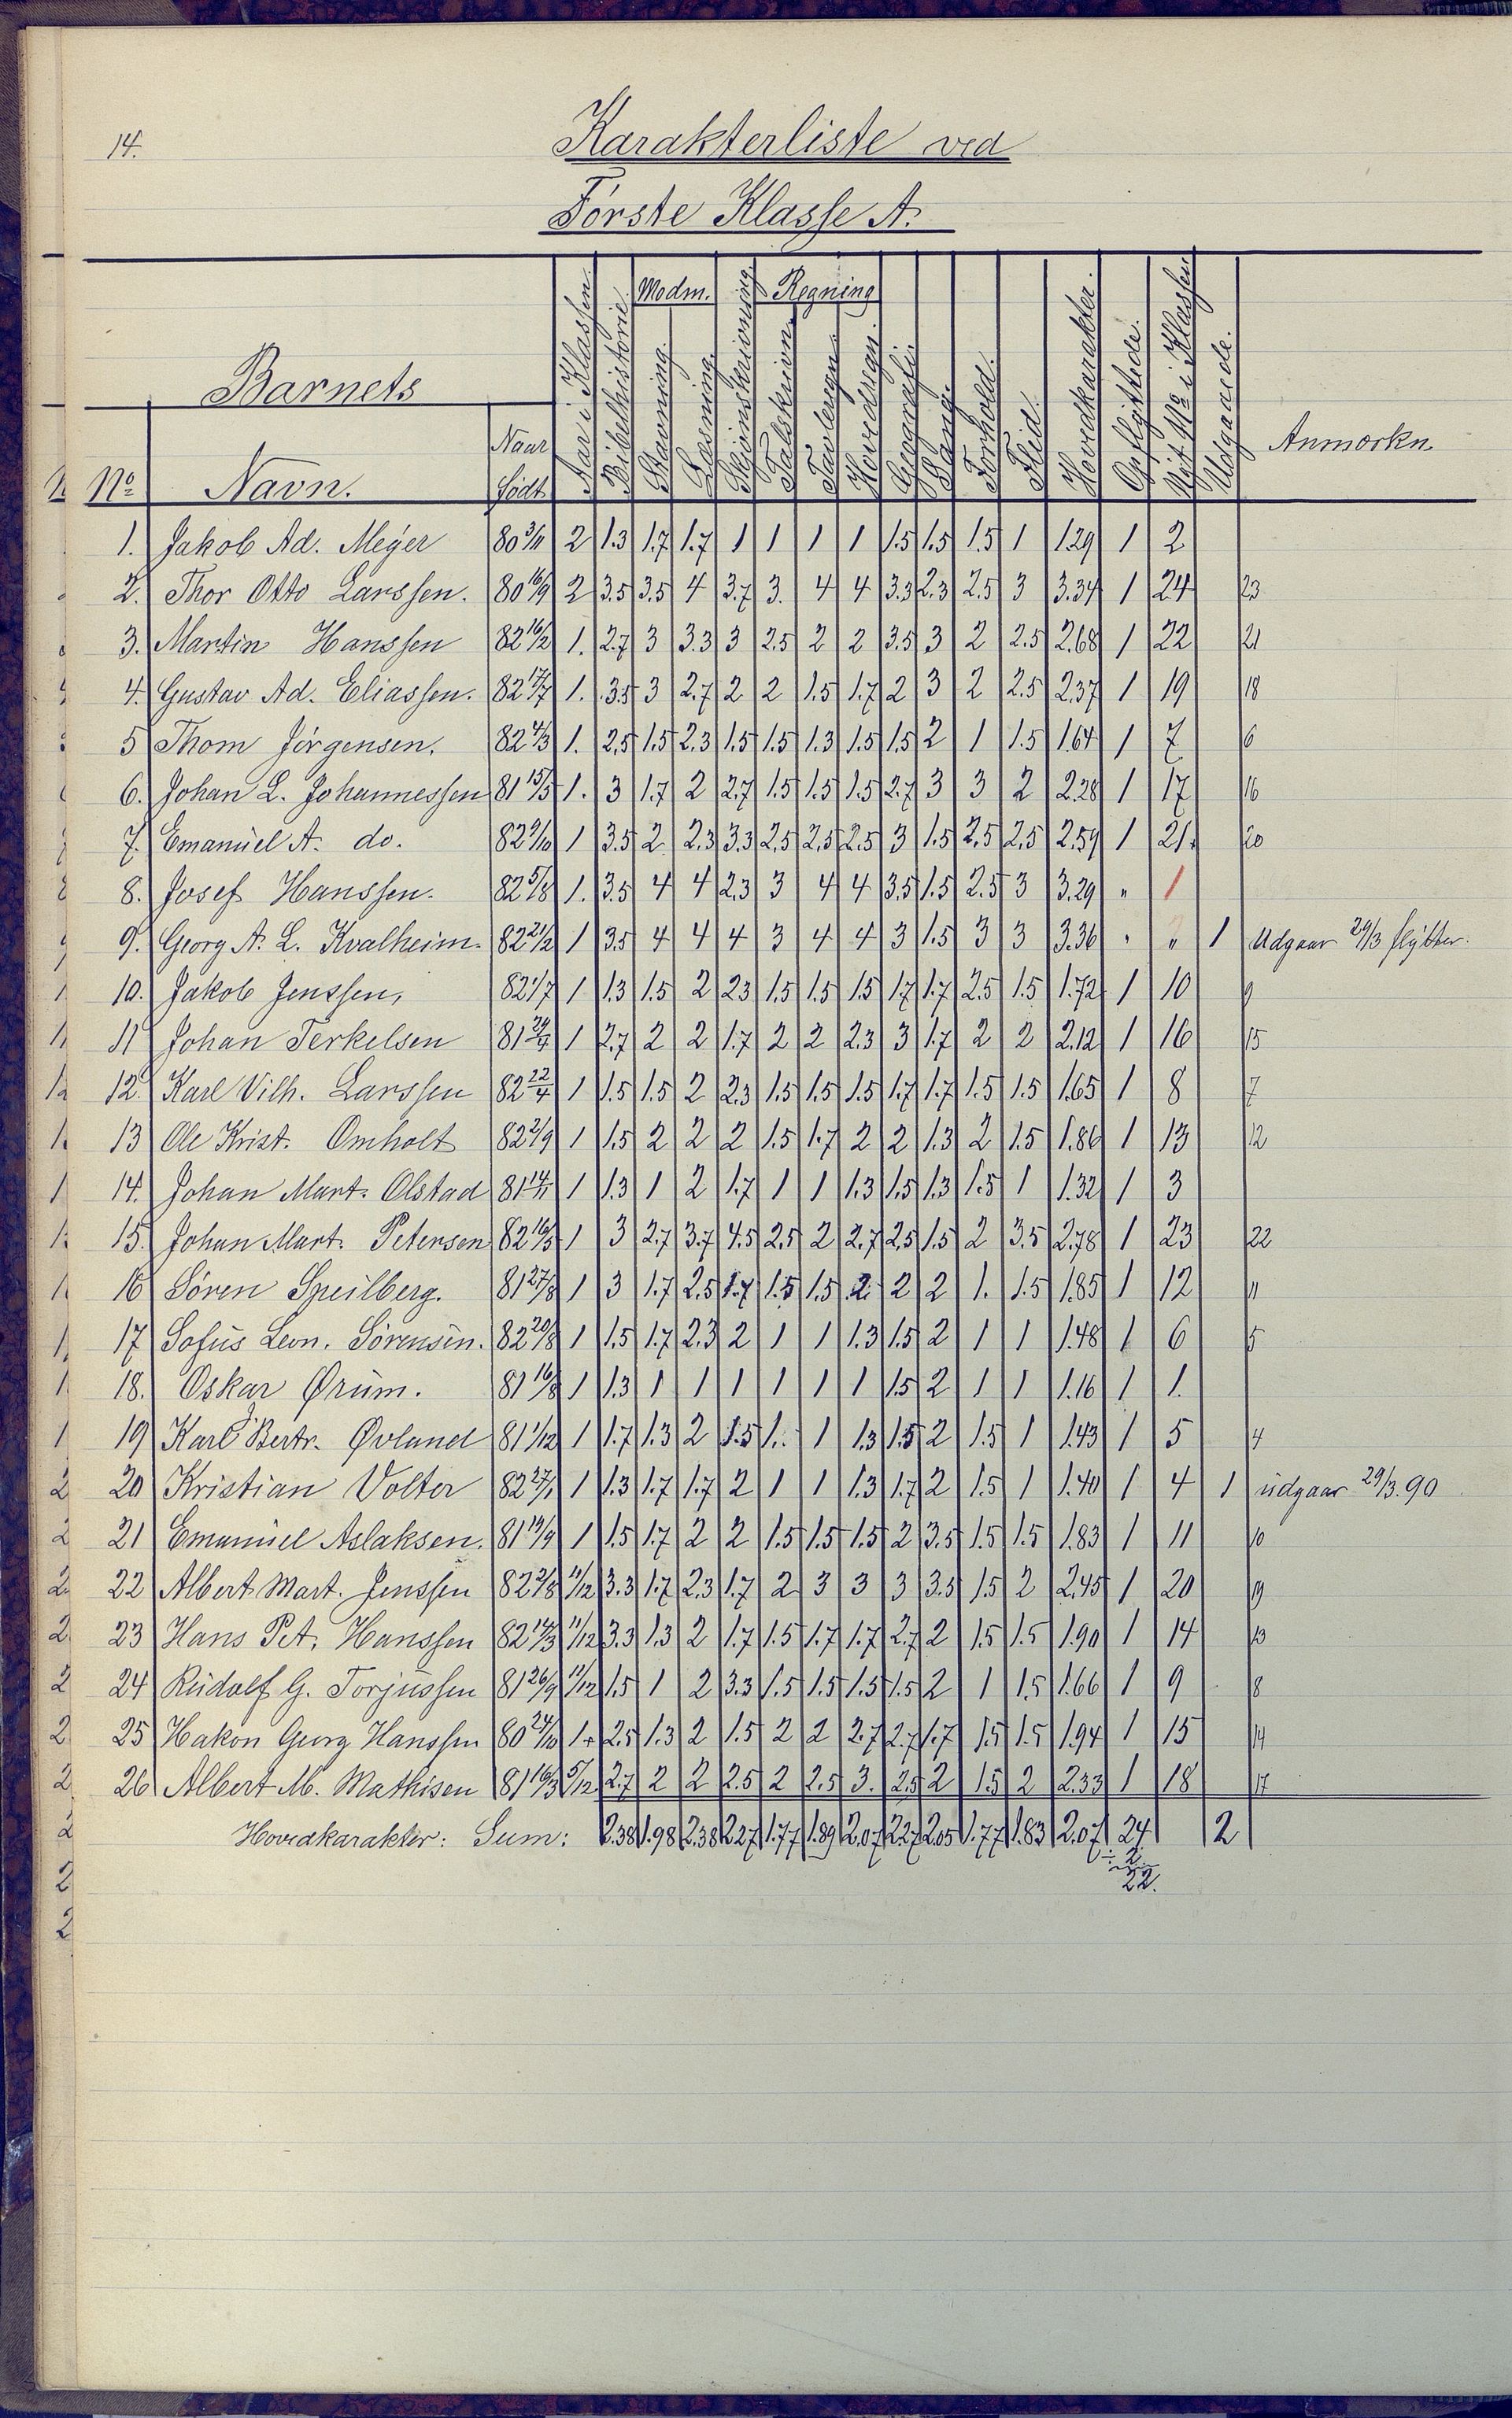 14.
Karakterliste ved
Første Klasse A.
Modm. Regning
Barnets
No Navn. Naar født Aar i Klassen. Bibelhistorie. Stavning. Læsning. Skjönskrivning. Talskrivn. Tavleregn. Hovedregn. Geografi. Sang. Forhold. Flid. Hovedkarakter. Opflyttede. Nyt No i Klassen Udgaaede. Anmærkn.
1. Jakob Ad. Mejer 80 3/11 2 1.3 1.7 1.7 1 1 1 1 1.5 1.5 1.5 1 1.29 1 2
2. Thor Otto Larssen. 80 16/9 2 3.5 3.5 4 3.7 3. 4 4 3.3 2.3 2.5 3 3.34 1 24 23
3. Martin Hanssen 82 16/2 1. 2.7 3 3.3 3 2.5 2 2 3.5 3 2 2.5 2.68 1 22 21
4. Gustav Ad. Eliassen. 82 17/7 1. 3.5 3 2.7 2 2 1.5 1.7 2 3 2 2.5 2.37 1 19 18
5 Thom Jörgensen. 82 4/3 1. 2.5 1.5 2.3 1.5 1.5 1.3 1.5 1.5 2 1 1.5 1.64 1 7 6
6. Johan L. Johannessen 81 15/5 1. 3 1.7 2 2.7 1.5 1.5 1.5 2.7 3 3 2 2.28 1 17 16
7. Emanuel A. do. 82 9/10 1 3.5 2 2.3 3.3 2.5 2.5 2.5 3 1.5 2.5 2.5 2.59 1 21. 20
8. Josef Hanssen. 82 5/8 1. 3.5 4 4 2.3 3 4 4 3.5 1.5 2.5 3 3.29 " 1
9. Georg A. L. Kvalheim. 82 21/2 1 3.5 4 4 4 3 4 4 3 1.5 3 3 3.36 " " 1 Udgaar 29/3 flytter.
10. Jakob Jenssen, 82 1/7 1 1.3 1.5 2 2.3 1.5 1.5 1.5 1.7 1.7 2.5 1.5 1.72 1 10 9
11 Johan Terkelsen 81 24/4 1 2.7 2 2 1.7 2 2 2.3 3 1.7 2 2 2.12 1 16 15
12. Karl Vilh. Larssen 82 22/4 1 1.5 1.5 2 2.3 1.5 1.5 1.5 1.7 1.7 1.5 1.5 1.65 1 8 7
13 Ole Krist. Omholt 82 2/9 1 1.5 2 2 2 1.5 1.7 2 2 1.3 2 1.5 1.86 1 13 12
14. Johan Mart. Olstad 81 14/11 1 1.3 1 2 1.7 1 1 1.3 1.5 1.3 1.5 1 1.32 1 3
15. Johan Mart. Petersen 82 16/5 1 3 2.7 3.7 4.5 2.5 2 2.7 2.5 1.5 2 3.5 2.78 1 23 22
16 Sören Speilberg. 81 27/8 1 3 1.7 2.5 1.7 1.5 1.5 2 2 2 1. 1.5 1.85 1 12 11
17 Sofus Leon. Sörensen. 82 20/8 1 1.5 1.7 2.3 2 1 1 1.3 1.5 2 1 1 1.48 1 6 5
18. Oskar Ørum. 81 16/8 1 1.3 1 1 1 1 1 1 1.5 2 1 1 1.16 1 1.
19 Karl Bertr. Øvland 81 1/12 1 1.7 1.3 2 1.5 1. 1 1.3 1.5 2 1.5 1 1.43 1 5 4
20 Kristian Volter 82 27/1 1 1.3 1.7 1.7 2 1 1 1.3 1.7 2 1.5 1 1.40 1 4 1 udgaar 29/3.90
21 Emanuel Aslaksen. 81 14/9 1 1.5 1.7 2 2 1.5 1.5 1.5 2 3.5 1.5 1.5 1.83 1 11 10
22 Albert Mart. Jenssen 82 2/8 11/12 3.3 1.7 2.3 1.7 2 3 3 3 3.5 1.5 2 2.45 1 20 19
23 Hans Pet. Hanssen 82 14/3 11/12 3.3 1.3 2 1.7 1.5 1.7 1.7 2.7 2 1.5 1.5 1.90 1 14 13
24 Rudolf G. Torjussen 81 26/9 11/12 1.5 1 2 3.3 1.5 1.5 1.5 1.5 2 1 1.5 1.66 1 9 8
25 Hakon Georg Hanssen 80 24/10 1+ 2.5 1.3 2 1.5 2 2 2.7 2.7 1.7 1.5 1.5 1.94 1 15 14
26 Albert M. Mathisen 81 16/3 5/12 2.7 2 2 2.5 2 2.5 3. 2.5 2 1.5 2 2.33 1 18 17
Hovedkarakter: Sum: 2.38 1.98 2.38 2.27 1.77 1.89 2.07 2.27 2.05 1.77 1.83 2.07 24 2
÷ 2
22.